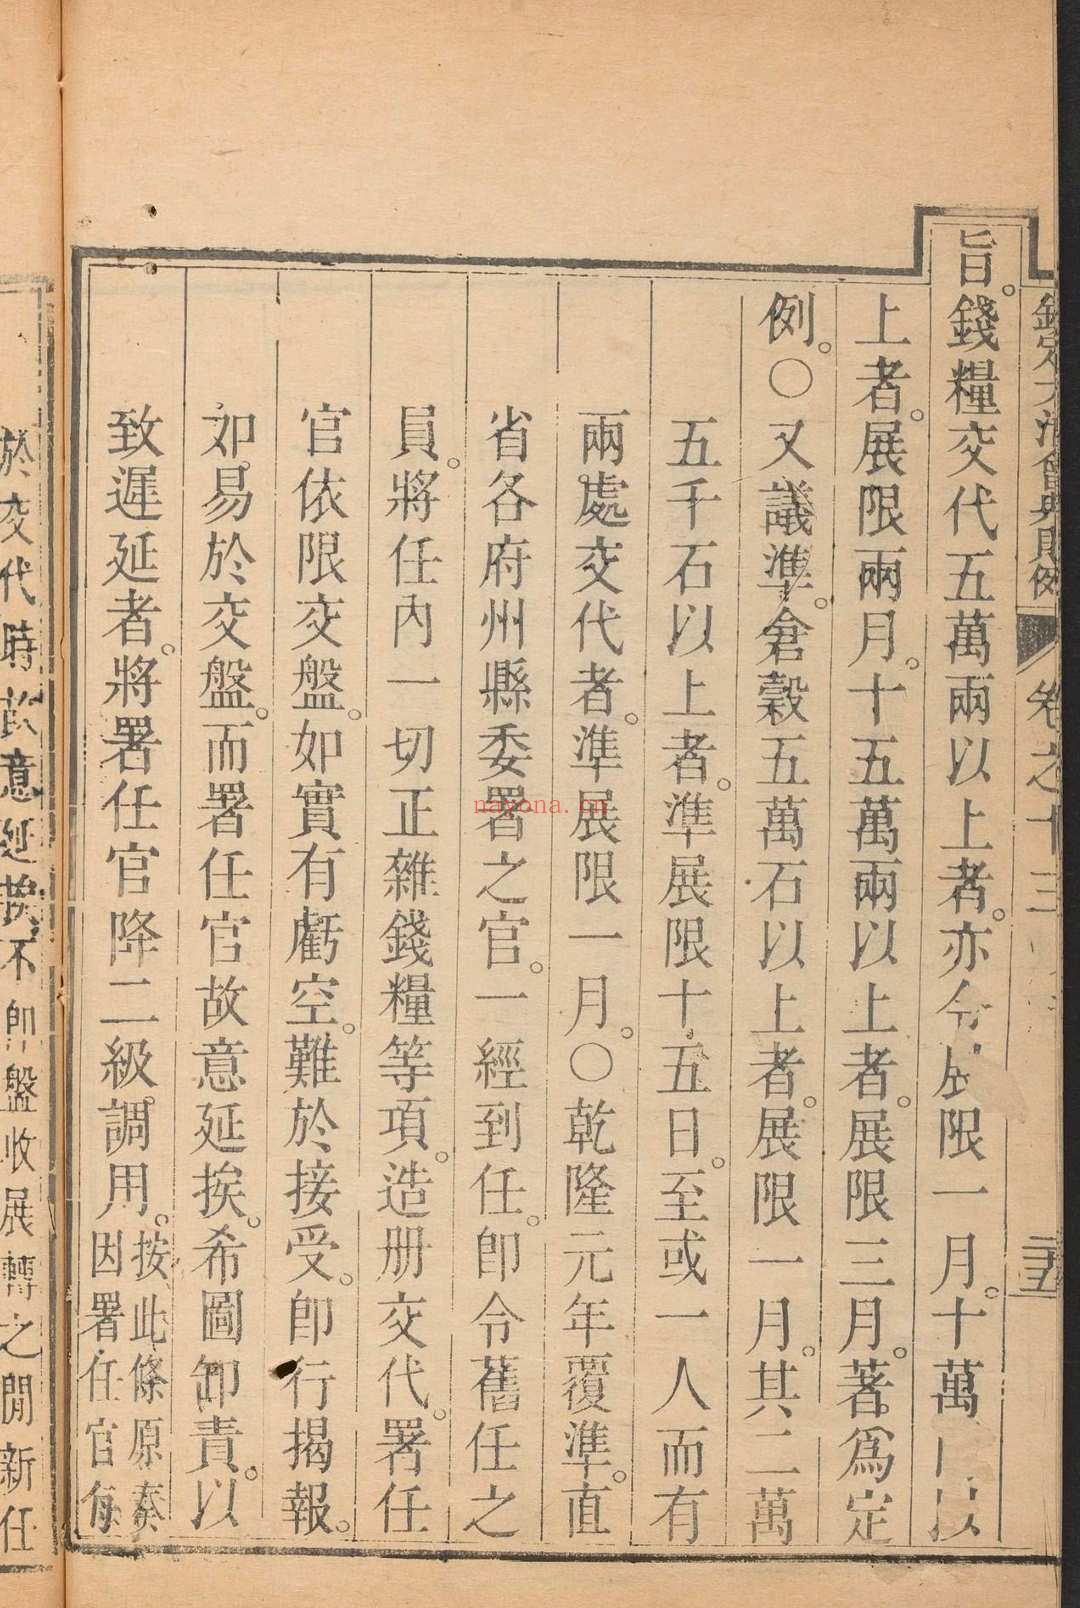 欽定大清會典則例 卷之十三 二十五
旨。錢糧交代五萬兩以上者。亦令展限一月。十萬以
上者。展限兩月。十五萬兩以上者。展限三月。著爲定
例。○又議準。倉穀五萬石以上者。展限一月。其二萬
五千石以上者。準展限十五日。至或一人而有
兩處交代者。準展限一月。○乾隆元年覆準。直
省各府州縣委署之官。一經到任。卽令舊任之
員。將任內一切正雜錢糧等項。造册交代。署任
官依限交盤。如實有虧空。難於接受。卽行揭報。
如易於交盤。而署任官故意延挨。希圖卸責。以
致遲延者。將署任官降二級調用。按此條原奏
因署任官每
於交代時故意延挨不卽盤收展轉之閒新任
nayona.cn